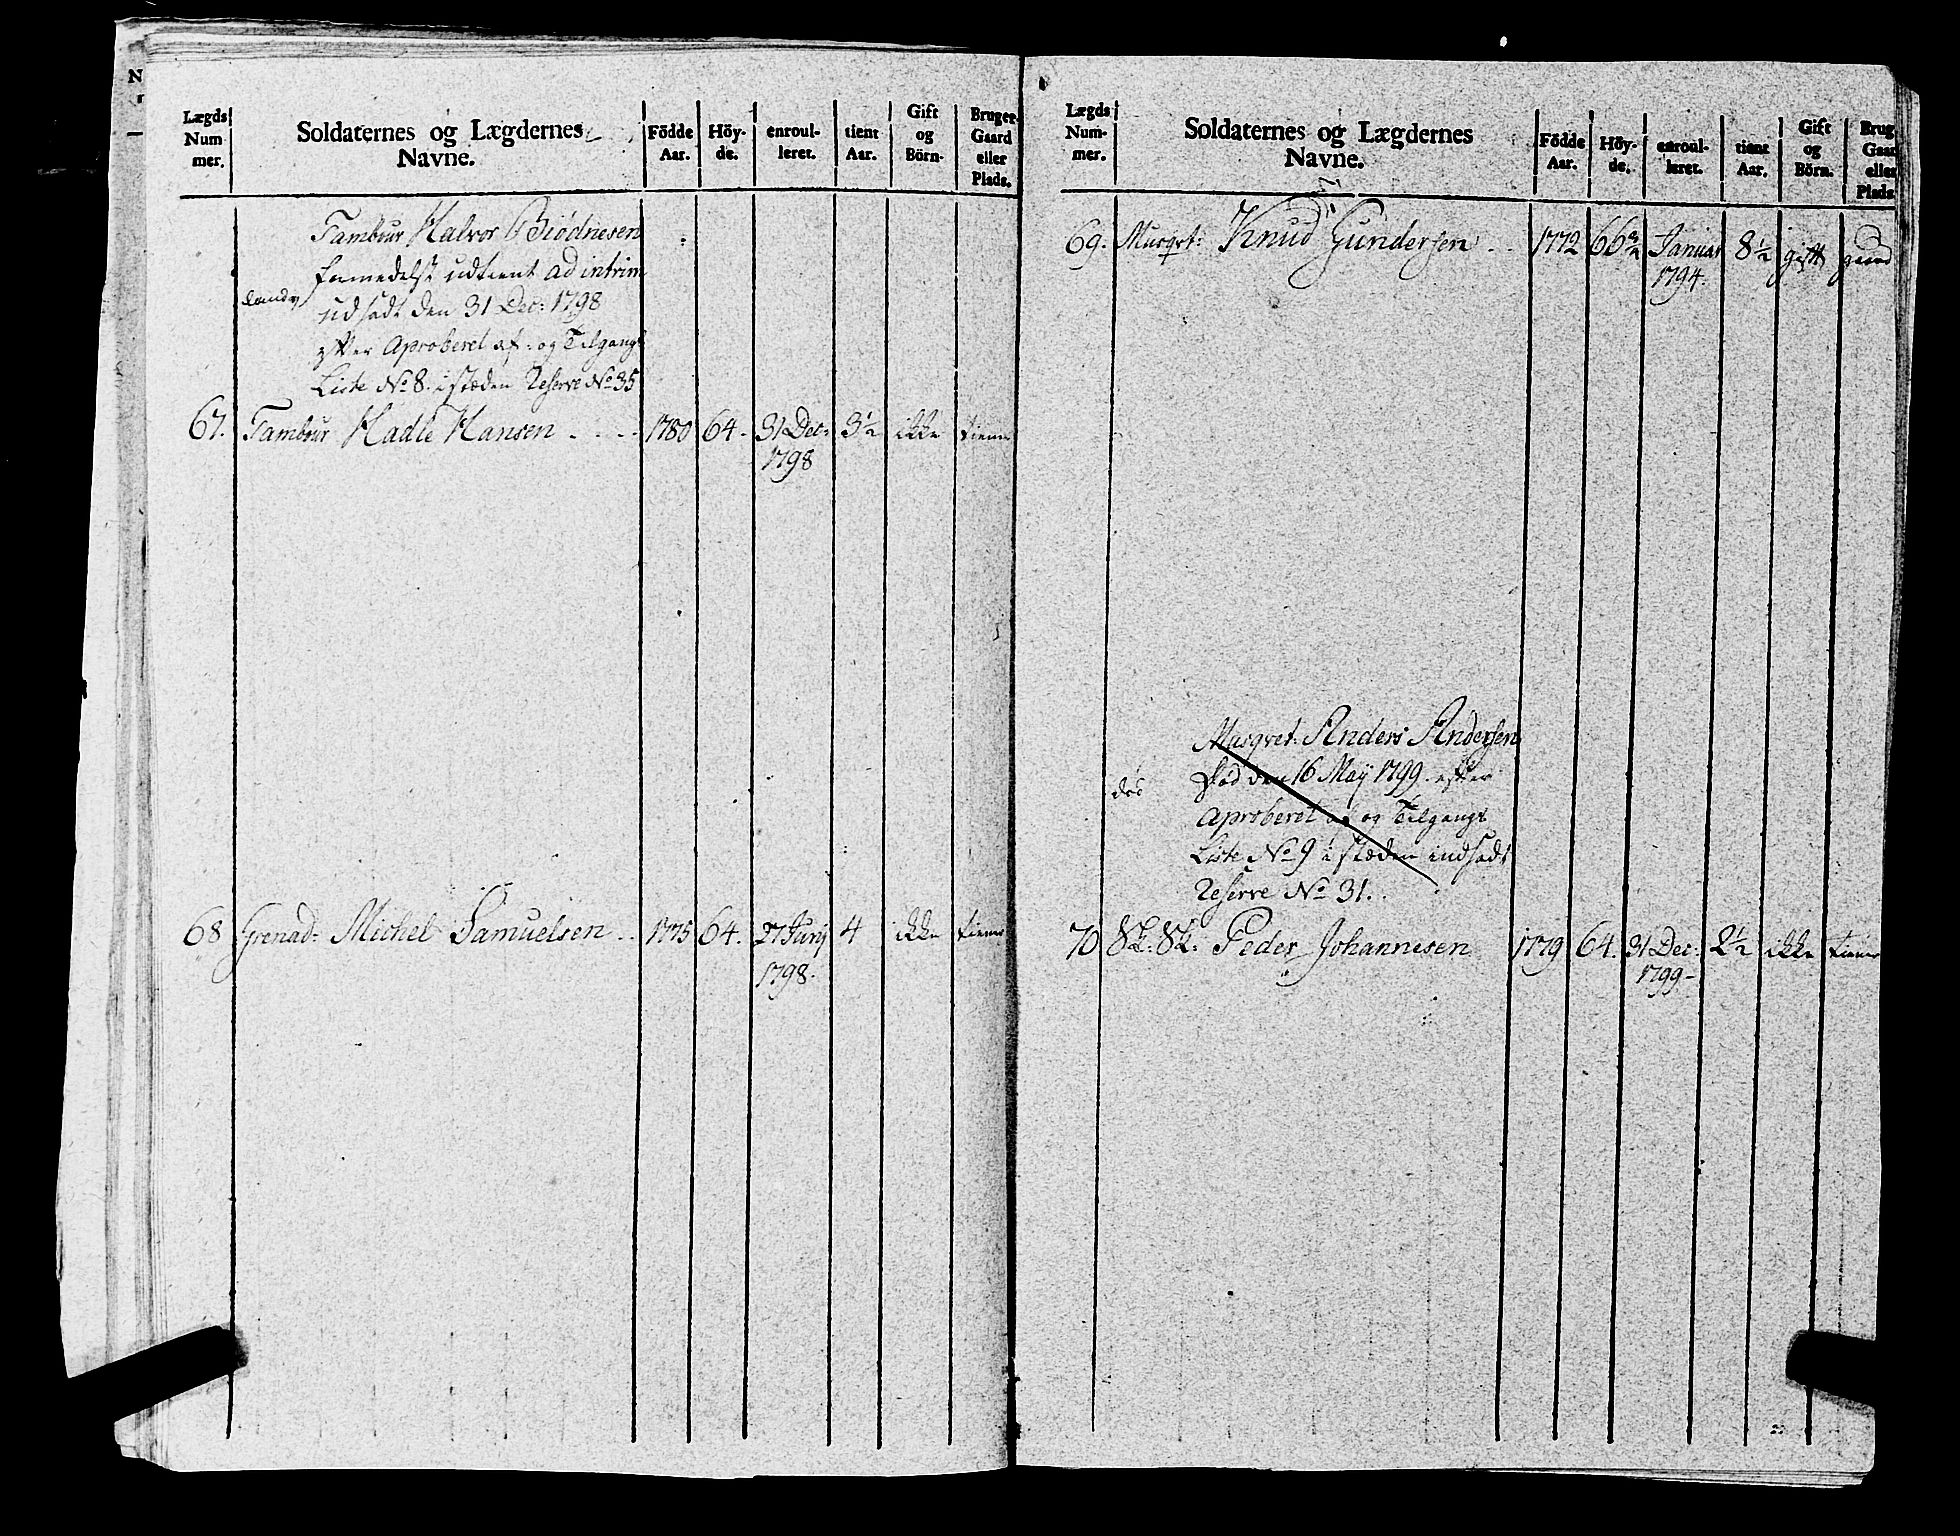 Lægds Num mer. | Soldaternes og Lægdernes Navne. | Födde Aar. | Höy- de. | enroul- leret. | tient Aar. | Gift og Börn. | Bruger Gaard eller Plads.
Tambour Halvor Biødnesen
formedelst udtient ad intrim
Landv udsadt den 31 Dec: 1798
efter Aproberet af- og Tilgangs
Liste No 8. i stæden Reserve No 35
67. Tambour Hadle Hansen 1780 64. 31 Dec: 3½ ikke tiener
1798
68 Grenad: Michel Samuelsen 1775 64. 27 Juny 4 ikke tiener
1798.
Lægds Num- mer. | Soldaternes og Lægdernes Navne. | Födde Aar. | Höy- de. | enroul- leret. | tient Aar. | Gift og Börn. | Brug Gaar eller Plads
69. Musqvt: Knud Gundersen 1772 66¾ Januar 8½ gift gaard
1794.
Musqvet: Anders Andersen
död den 16 May 1799. efter
Aproberet af og Tilgangs
Liste No 9 i stæden indsadt
Reserve No 31.
70 Sk: Sk: Peder Johannesen 1779 64. 31 Dec: 2½ ikke tiener
1799